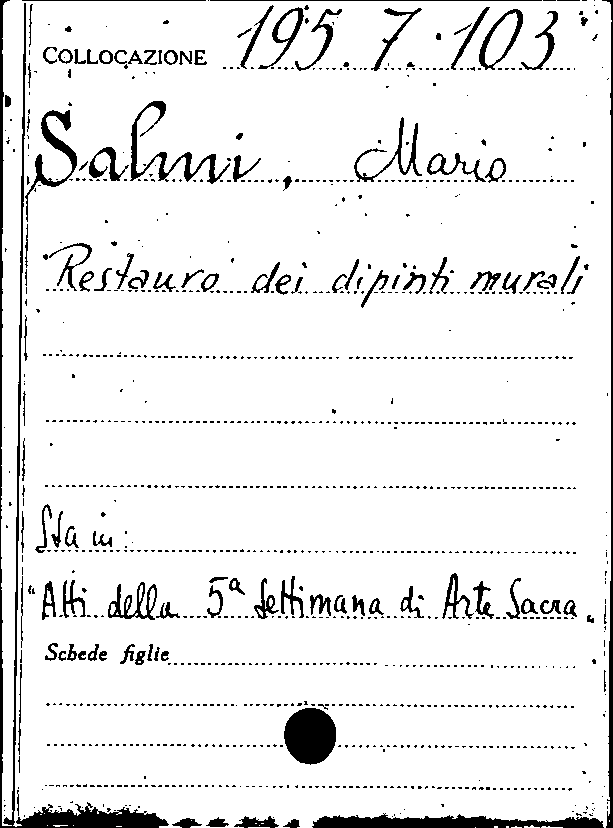 COLLOCAZIONE 195.7.103
Salmi, Mario
Restauro dei dipinti murali
Sta in:
"Atti della 5ª Settimana di Arte Sacra"
Schede figlie